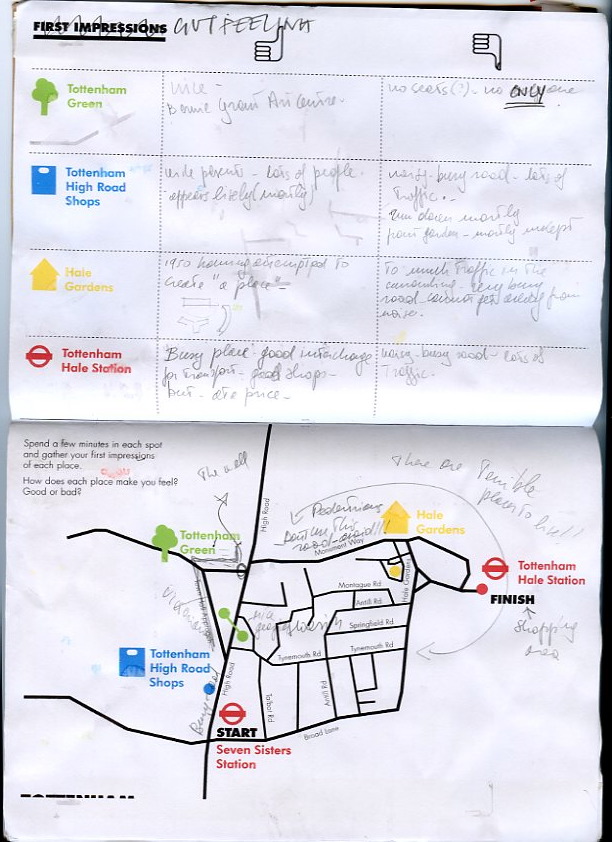 FIRST IMPRESSIONS GUT FEELING
Tottenham
Green
nice -
Bernie Grant Art Centre.
no seats(?) - no ONLY one
Tottenham
High Road
Shops
wide - lots of people.
appears lively (mostly)
noisy - busy road - lots of
Traffic.
run down mostly
front garden - mostly unkept
Hale
Gardens
1950 housing attempted to
create "a place" -
To much Traffic in the
surrounding - very busy
road cannot get away from
noise.
Tottenham
Hale Station
Busy place - good interchange
for transport - good shops -
but - at a price -
noisy - busy road - lots of
Traffic.
Spend a few minutes in each spot
and gather your first impressions
of each place.
How does each place make you feel?
Good or bad?
The wall
There are Terrible
place to live!!
High Road
Pedestrians
on this
road - avoid!!!
Hale
Gardens
Tottenham
Green
Monument Way
Tottenham
Hale Station
Montague Rd
Hale Gardens
FINISH
Antill Rd
Victorian
nice
Springfield Rd
Shopping
area
Tynemouth Rd
Tynemouth Rd
Tottenham
High Road
Shops
High Road
Busy road
Talbot Rd
Antill Rd
START
Broad Lane
Seven Sisters
Station
TOTTENHAM